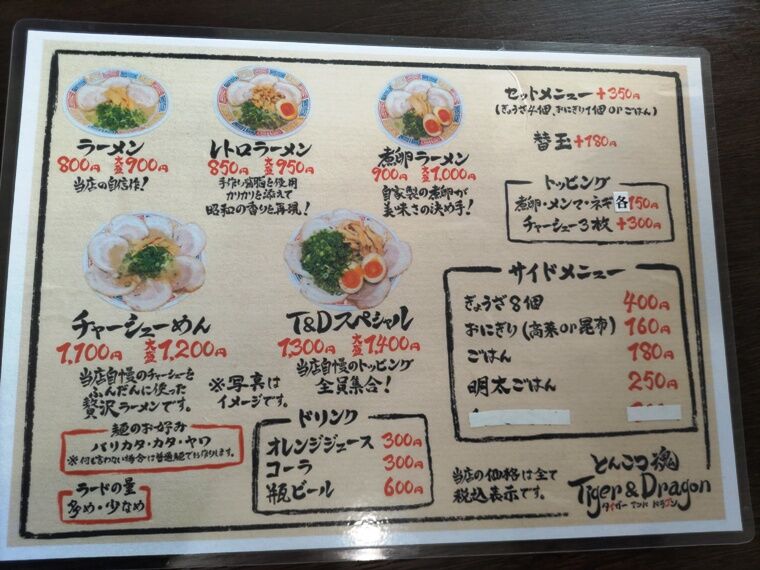 ラーメン
800円 大盛900円
当店の自信作!
レトロラーメン
850円 大盛950円
手作り背脂を使用
カリカリを添えて
昭和の香りを再現!
煮卵ラーメン
900円 大盛1,000円
自家製の煮卵が
美味さの決め手!
セットメニュー +350円
(ぎょうざ4個、おにぎり1個orごはん)
替玉 +180円
トッピング
煮卵・メンマ・ネギ 各150円
チャーシュー3枚 +300円
チャーシューめん
1,100円 大盛1,200円
当店自慢のチャーシューを
ふんだんに使った
贅沢ラーメンです。
T&Dスペシャル
1,300円 大盛1,400円
当店自慢のトッピング
全員集合!
※写真は
イメージです。
サイドメニュー
ぎょうざ8個 400円
おにぎり(高菜or昆布) 160円
ごはん 180円
明太ごはん 250円
麺のお好み
バリカタ・カタ・ヤワ
※何も言わない場合は普通麺でお作りします。
ラードの量
多め・少なめ
ドリンク
オレンジジュース 300円
コーラ 300円
瓶ビール 600円
当店の価格は全て
税込表示です。
とんこつ魂
Tiger & Dragon
タイガー アンド ドラゴン